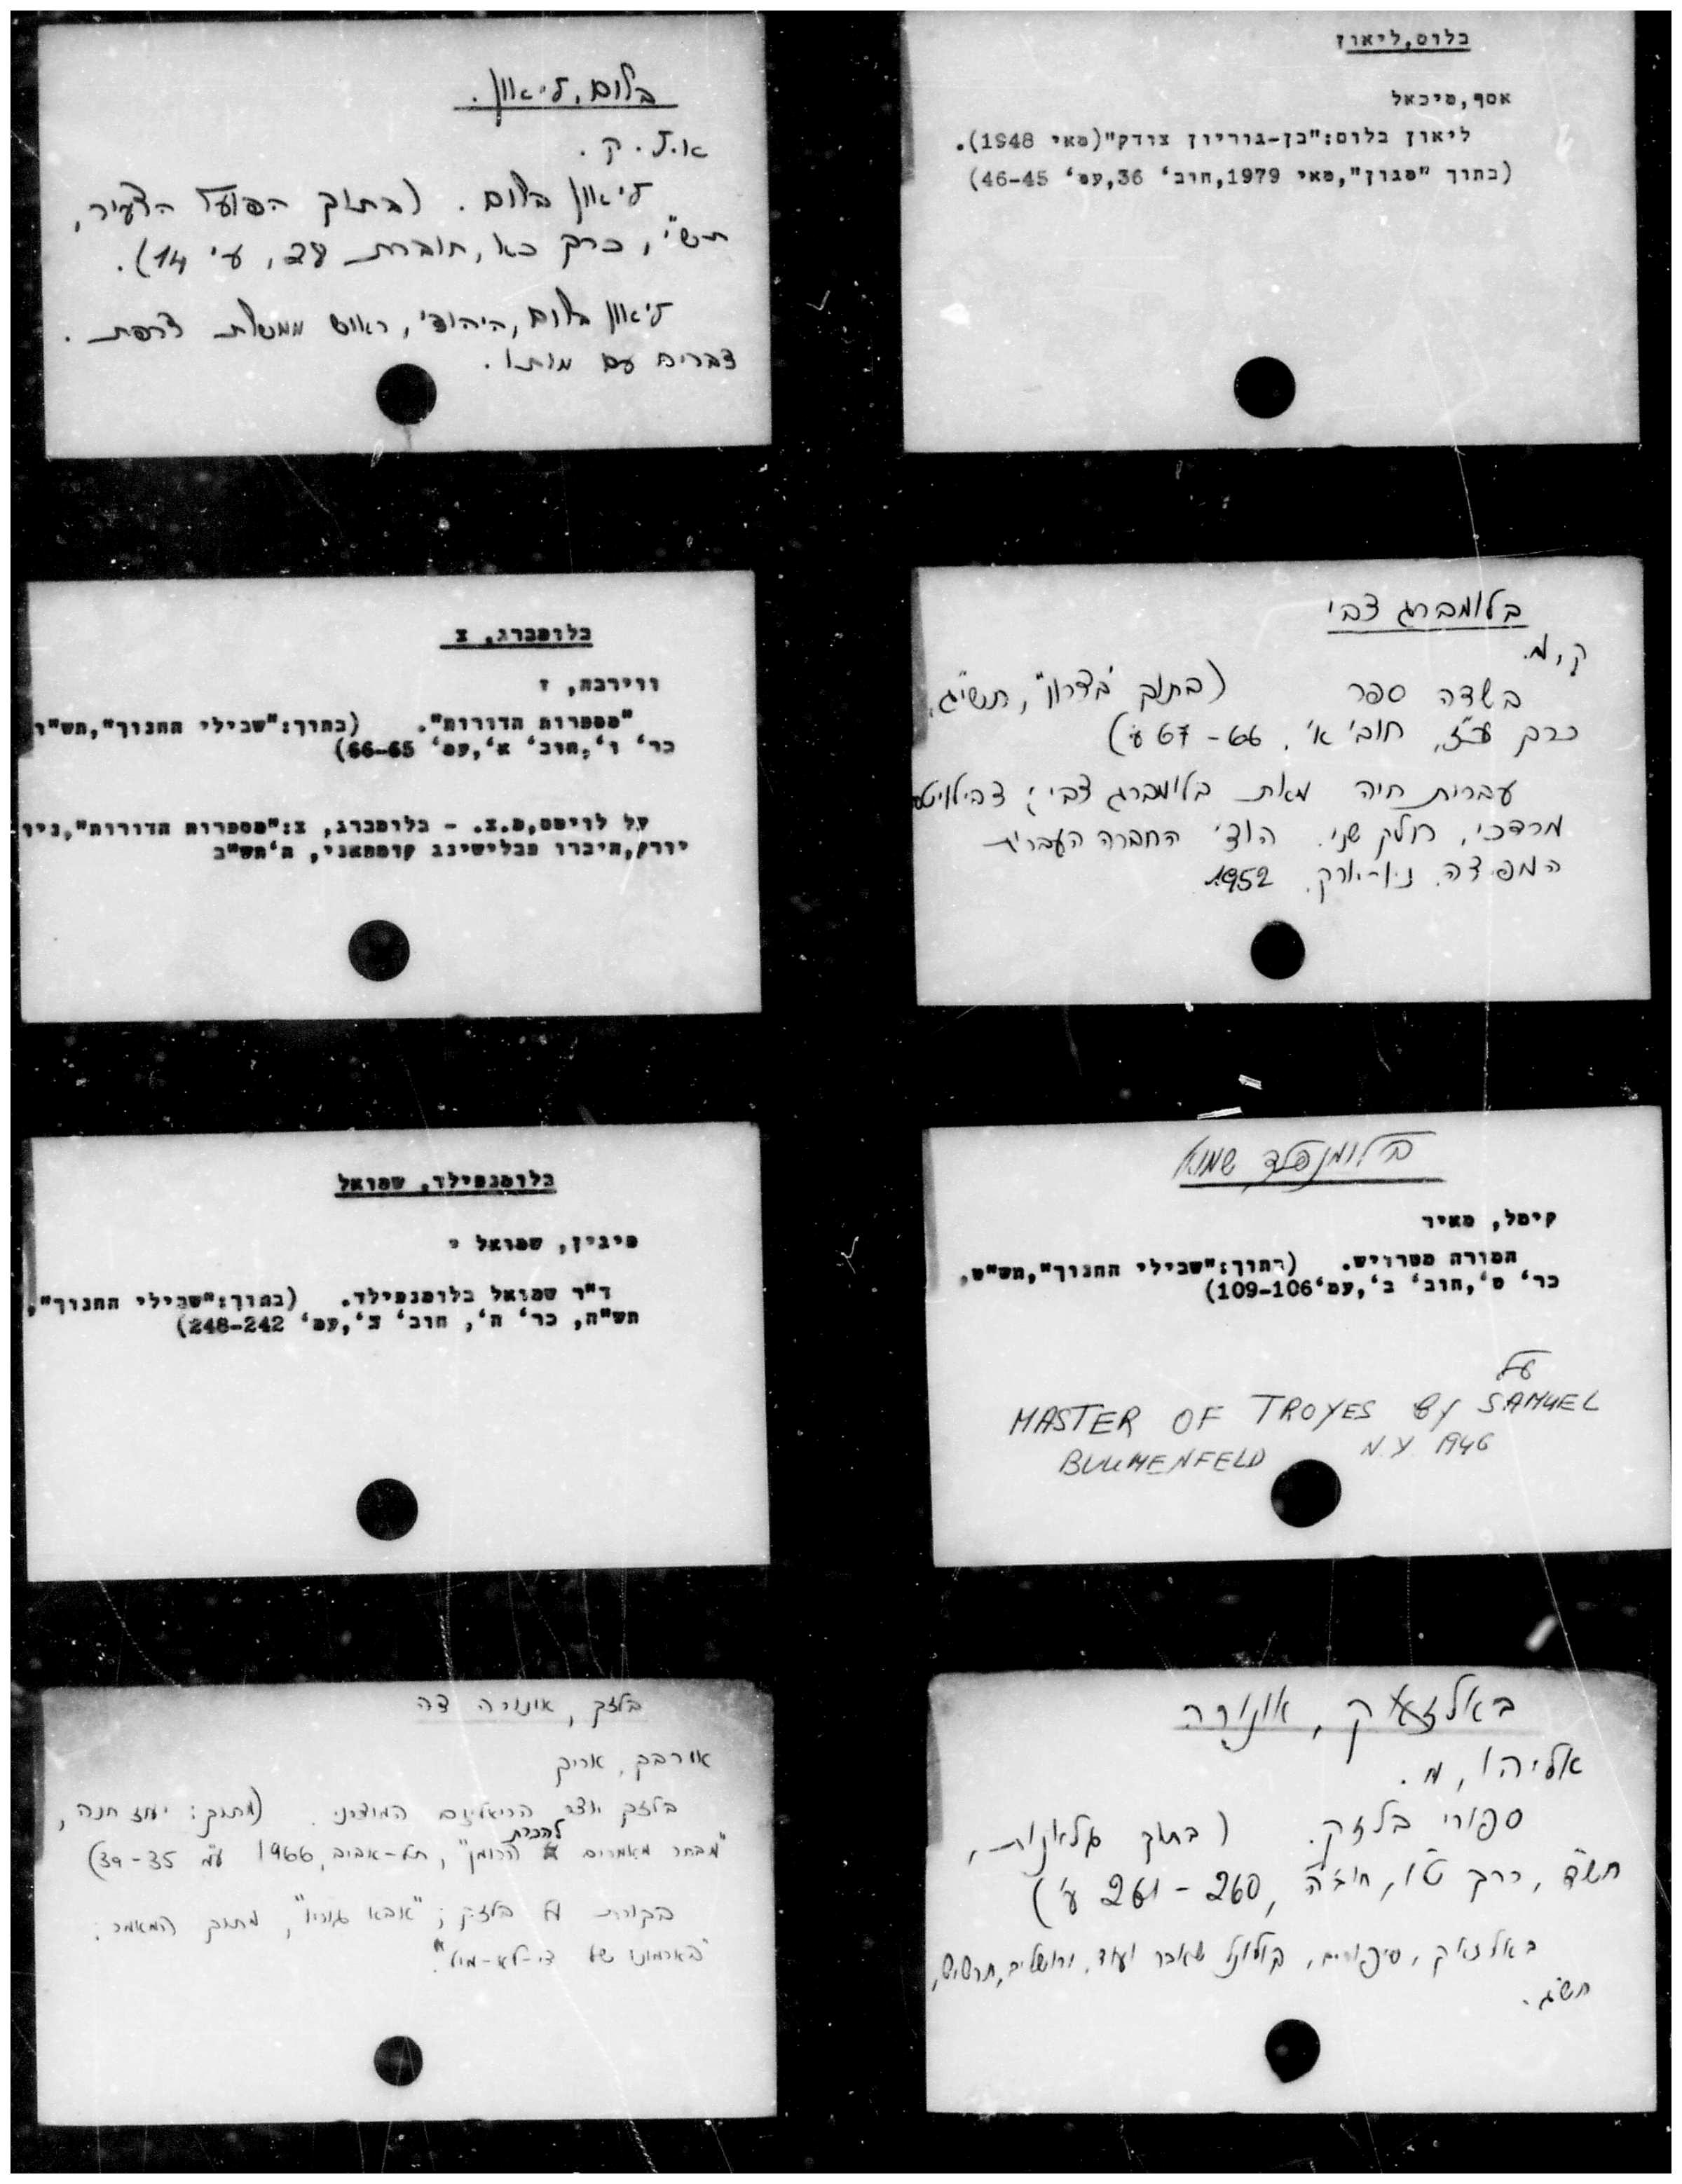 בלום, ליאון.
א.ל.ק.
ליאון בלום. (בתוך הפועל הצעיר,
תש"י, כרך כא, חוברת 28, ע' 14).
ליאון בלום, היהודי, ראש ממשלת צרפת.
דברים עם מותו.
בלום,ליאון
אסף,מיכאל
ליאון בלום:"בן-גוריון צודק"(מאי 1948).
(בתוך "מגוון",מאי 1979,חוב' 36,עמ' 46-45)
בלומברג, צ
ווירבה, ז
"מספרות הדורות". (בתוך:"שבילי החנוך",תש"ו
כר' ו',חוב' א',עמ' 66-65)
על לויסם,מ.צ. - בלומברג, צ:"מספרות הדורות",ניו
יורק,היברו פבלישינג קומפאני, ה'תש"ב
בלומברג צבי
ק, מ.
בשדה ספר (בתוך "בצרון", תשי"ג,
כרך כ"ז, חוב' א', 66-67 ע')
עברית חיה מאת בלומברג צבי;
מרדכי, חלק שני. הוצ' החברה העברית
ניו-יורק. 1952.
בלומנפילד, שמואל
פיגין, שמואל י
ד"ר שמואל בלומנפילד. (בתוך:"שבילי החנוך",
תש"ה, כר' ה', חוב' ד',עמ' 248-242)
בלומנפלד שמואל
קימל, מאיר
המורה מטרויש. (בתוך:"שבילי החנוך",תש"ט,
כר' ט',חוב' ב',עמ' 109-106)
על
MASTER OF TROYES BY SAMUEL
BLUMENFELD N.Y. 1946
בלזק, אונורה דה
אורבך, אריך
בלזק יוצר הריאליזם המודרני. (מתוך: יעוז חנה,
"מבחר מאמרים להכרת הרומן", תל-אביב, 1966 עמ' 35-39)
בקורת על בלזק; "אבא גוריו", מתוך המאמר:
"בארמונו של דה-לא-מול"
באלזאק, אונורה
אליהו, מ.
ספורי בלזק. (בתוך גליונות,
תשד, כרך ט"ו, חוב' ה, 260-261 ע')
באלזאק, סיפורים, קולונל שאבר ועוד, ירושלים, תרשיש,
תש"ג.